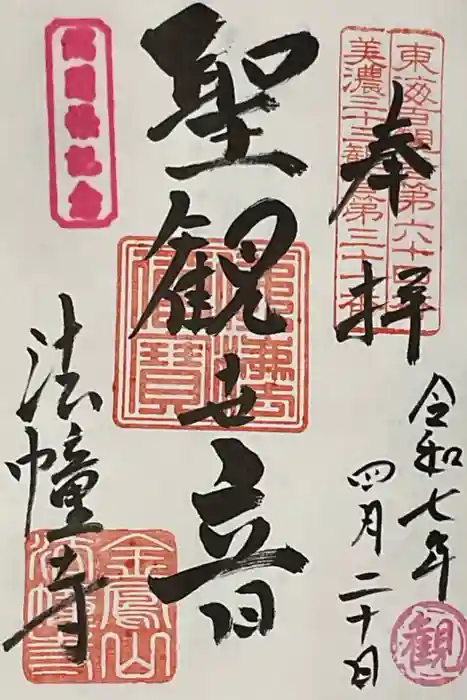 東海百観音第六十四番
美濃三十三観音第三十一番
奉拝
令和七年
四月二十日
聖観世音
佛法僧寶
法幢寺
金鳳山
法幢寺
観